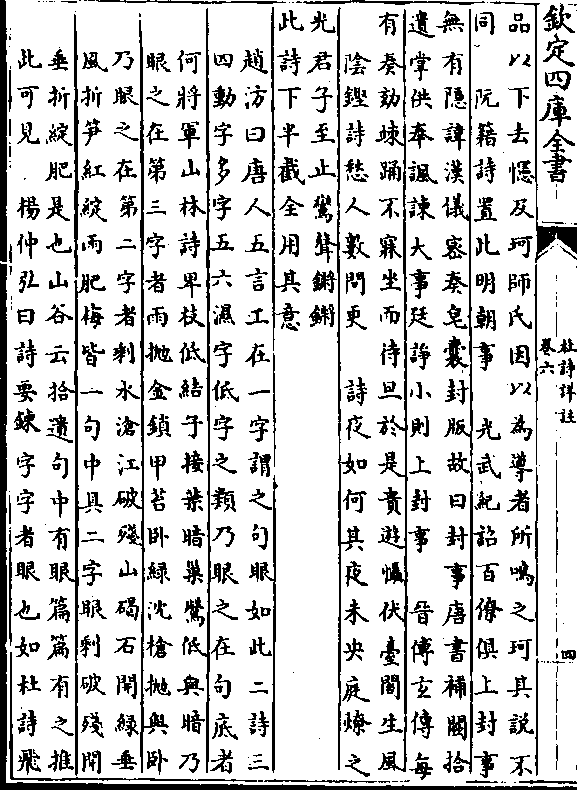 欽定四庫全書
杜詩詳註
卷六
四
品以下去幰及珂師氏因以為導者所鳴之珂其說不
同　阮籍詩置此明朝事　光武紀詔百僚俱上封事
無有隱諱漢儀密奏皂囊封版故曰封事唐書補闕拾
遺掌供奉諷諫大事廷諍小則上封事　晉傅玄傳每
有奏劾竦踊不寐坐而待旦於是貴遊懾伏臺閣生風
陰鏗詩愁人數問更　詩夜如何其夜未央庭燎之
光君子至止鸞聲鏘鏘
此詩下半截全用其意
趙汸曰唐人五言工在一字謂之句眼如此二詩三
四動字多字五六濕字低字之類乃眼之在句底者
何將軍山林詩卑枝低結子接葉暗巢鶯低與暗乃
眼之在第三字者雨拋金鎖甲苔卧綠沈槍拋與卧
乃眼之在第二字者剩水滄江破殘山碣石開綠垂
風折笋紅綻雨肥梅皆一句中具二字眼剩破殘開
垂折綻肥是也山谷云拾遺句中有眼篇篇有之推
此可見　楊仲弘曰詩要鍊字字者眼也如杜詩飛